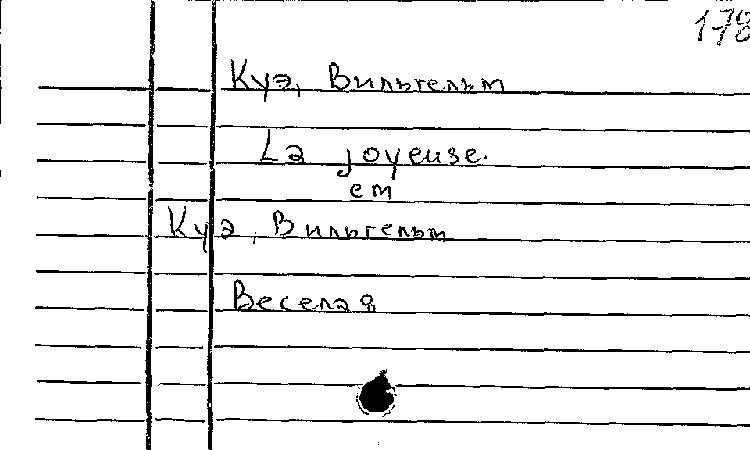 Куэ, Вильгельм
La joyeuse.
em
Куэ, Вильгельм
Веселая